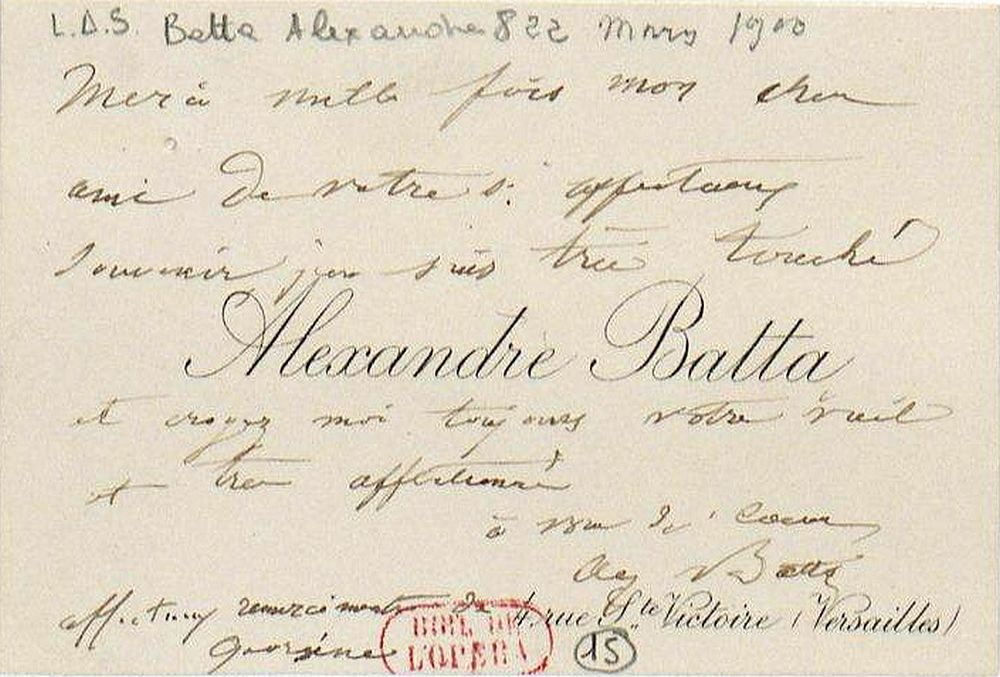 L.A.S. Batta Alexandre 822 Mars 1900
Merci mille fois mon cher
ami de votre si affectueux
souvenir j'en suis très touché
Alexandre Batta
et croyez moi toujours votre vieil
et très affectionné
à vous de coeur
Alex Batta
affectueux remerciements de
4, rue Ste Victoire (Versailles)
BIBL. DE
L'OPÉRA
15